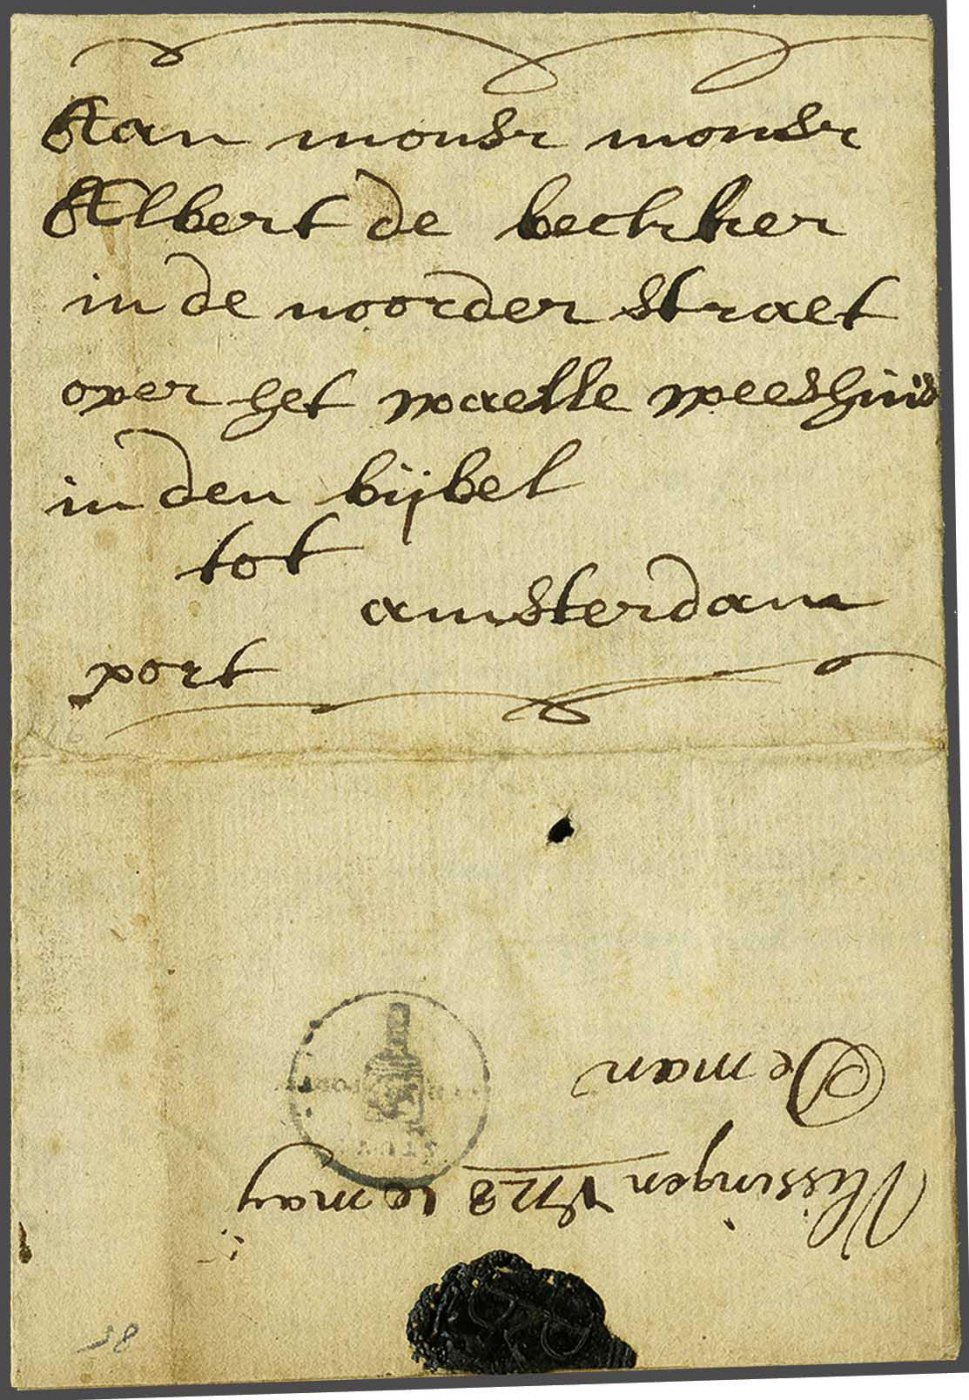 Aan monsr monsr
Albert de beckker
in de noorder straet
over het waelle weeshuis
in den bijbel
tot
amsterdam
port
De man
Vlissingen 1728 1e may
38